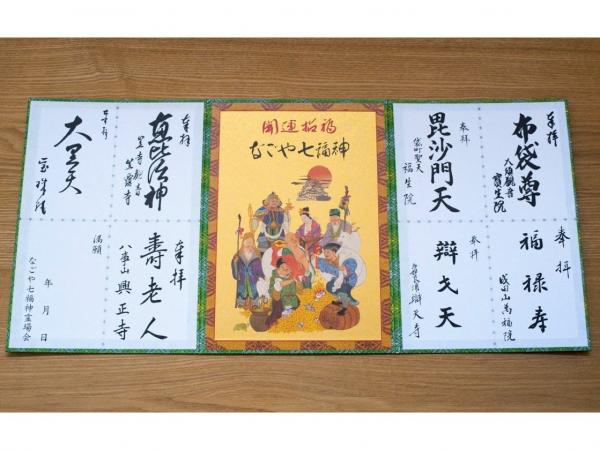 奉拝
布袋尊
大須観音
寶生院
奉拝
毘沙門天
袋町聖天
福生院
奉拝
福禄寿
成田山萬福院
奉拝
辯才天
辯天寺
開運招福
なごや七福神
奉拝
恵比須神
笠寺観音
笠覆寺
大黒天
宝珠院
奉拝
壽老人
八事山興正寺
満願
年 月 日
なごや七福神霊場会